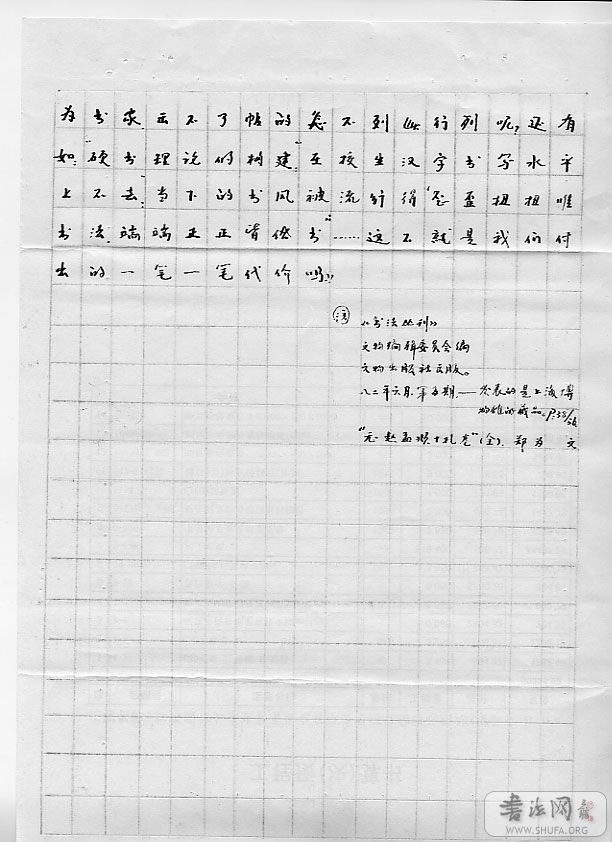 为书家。出不了帖的怎不列此行列呢?还有
如:"硬书理说的构建""在校生汉字书写水平
上不去""当下的书风被流行得'歪歪扭扭唯
书法,端端正正皆俗书'"……这不就是我们付
出的一笔一笔代价吗?
《书法丛刊》
文物编辑委员会编
文物出版社出版。
八二年六月.第五期.——发表的是上海博
物馆的藏品。P.38/
"元.赵孟頫十札卷"(全).郑为 文
工程预(决)算书
書法网
WWW.SHUFA.ORG